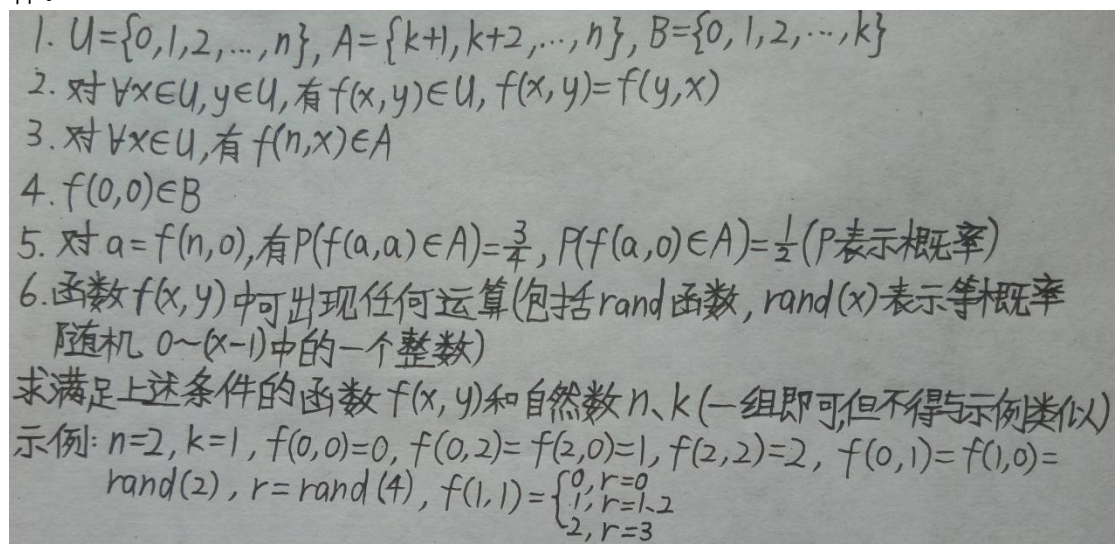 1. U={0,1,2,…,n}, A={k+1,k+2,…,n}, B={0,1,2,…,k}
2. 对∀x∈U,y∈U,有f(x,y)∈U, f(x,y)=f(y,x)
3. 对∀x∈U,有f(n,x)∈A
4. f(0,0)∈B
5. 对a=f(n,0),有P(f(a,a)∈A)=3/4, P(f(a,0)∈A)=1/2(P表示概率)
6. 函数f(x,y)中可出现任何运算(包括rand函数, rand(x)表示等概率
随机0~(x-1)中的一个整数)
求满足上述条件的函数f(x,y)和自然数n、k(一组即可,但不得与示例类似)
示例: n=2, k=1, f(0,0)=0, f(0,2)=f(2,0)=1, f(2,2)=2, f(0,1)=f(1,0)=
rand(2), r=rand(4), f(1,1)={0, r=0
1, r=1、2
2, r=3